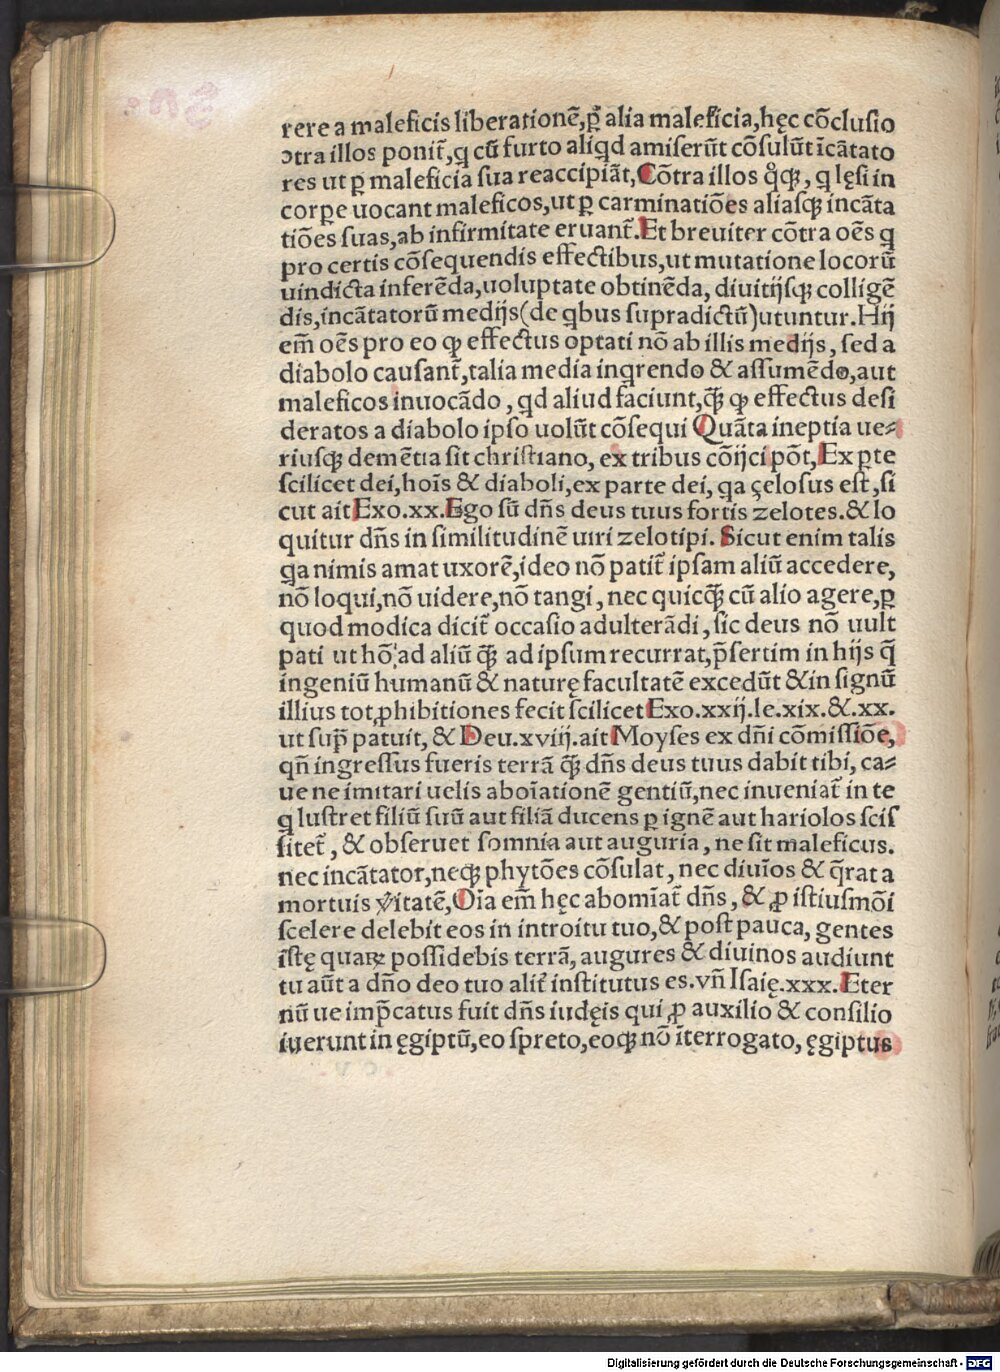 rere a maleficis liberationē,ꝑ alia maleficia,hęc cōclusio
ↄtra illos ponit̃,q cū furto aliqd amiserūt cōsulūt īcātato
res ut ꝑ maleficia sua reaccipiāt,Cōtra illos qͦꝗ, q lęsi in
corꝑe uocant maleficos,ut ꝑ carminatiōes aliasꝗ incāta
tiōes suas,ab infirmitate eruant̃.Et breuiter cōtra oēs q
pro certis cōsequendis effectibus,ut mutatione locorū
uindicta inferēda,uoluptate obtinēda, diuitijsꝗ colligē
dis,incātatorū medijs(de qbus supradictū)utuntur.Hij
em̄ oēs pro eo ꝙ effectus optati nō ab illis medijs, sed a
diabolo causant̃,talia media inqrendo & assumēdo,aut
maleficos inuocādo, qd aliud faciunt,q̄ꝫ ꝙ effectus desi
deratos a diabolo ipso uolūt cōsequi Quāta ineptia ue⸗
riusꝗ demētia sit christiano, ex tribus cōijci pōt,Ex ꝑte
scilicet dei,hoīs & diaboli,ex parte dei, qa çelosus est,si
cut ait Exo.xx.Ego sū dn̄s deus tuus fortis zelotes.& lo
quitur dn̄s in similitudinē uiri zelotipi. Sicut enim talis
qa nimis amat uxorē,ideo nō patit̃ ipsam aliū accedere,
nō loqui,nō uidere,nō tangi, nec quicq̄ꝫ cū alio agere,ꝑ
quod modica dicit̃ occasio adulterādi, sic deus nō uult
pati ut hō ad aliū q̄ꝫ ad ipsum recurrat,p̄sertim in hijs q̄
ingeniū humanū & naturę facultatē excedūt &in signū
illius tot ꝓhibitiones fecit scilicet Exo.xxij.le.xix.&.xx.
ut sup̄ patuit, & Deu.xviij.ait Moyses ex dn̄i cōmissiōe,
qn̄ ingressus fueris terrā q̄ꝫ dn̄s deus tuus dabit tibi, ca⸗
ue ne imitari uelis aboīationē gentiū,nec inueniat̃ in te
q lustret filiū suū aut filiā ducens ꝑ ignē aut hariolos scis
sitet̃, & obseruet somnia aut auguria, ne sit maleficus.
nec incātator,neꝗ phytōes cōsulat, nec diuīos & q̄rat a
mortuis ꝟitatē,Oīa em̄ hęc abomīat̃ dn̄s, & ꝓ istiusmōi
scelere delebit eos in introitu tuo,& post pauca, gentes
istę quaꝝ possidebis terrā, augures & diuinos audiunt
tu aūt a dn̄o deo tuo alit̃ institutus es.vn̄ Isaię.xxx.Eter
nū ue imp̄catus fuit dn̄s iudęis qui ꝓ auxilio & consilio
iuerunt in ęgiptū,eo spreto,eoꝗ nō īterrogato, ęgiptus
Digitalisierung gefördert durch die Deutsche Forschungsgemeinschaft - DFG